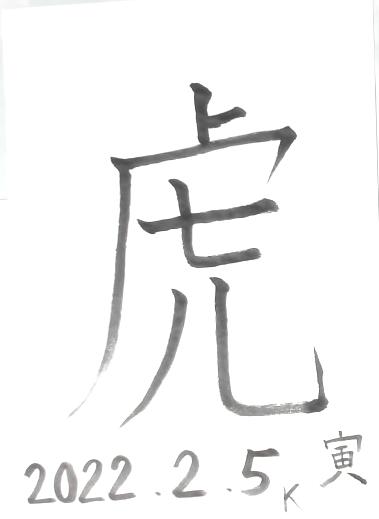 虎
2022.2.5 K 寅